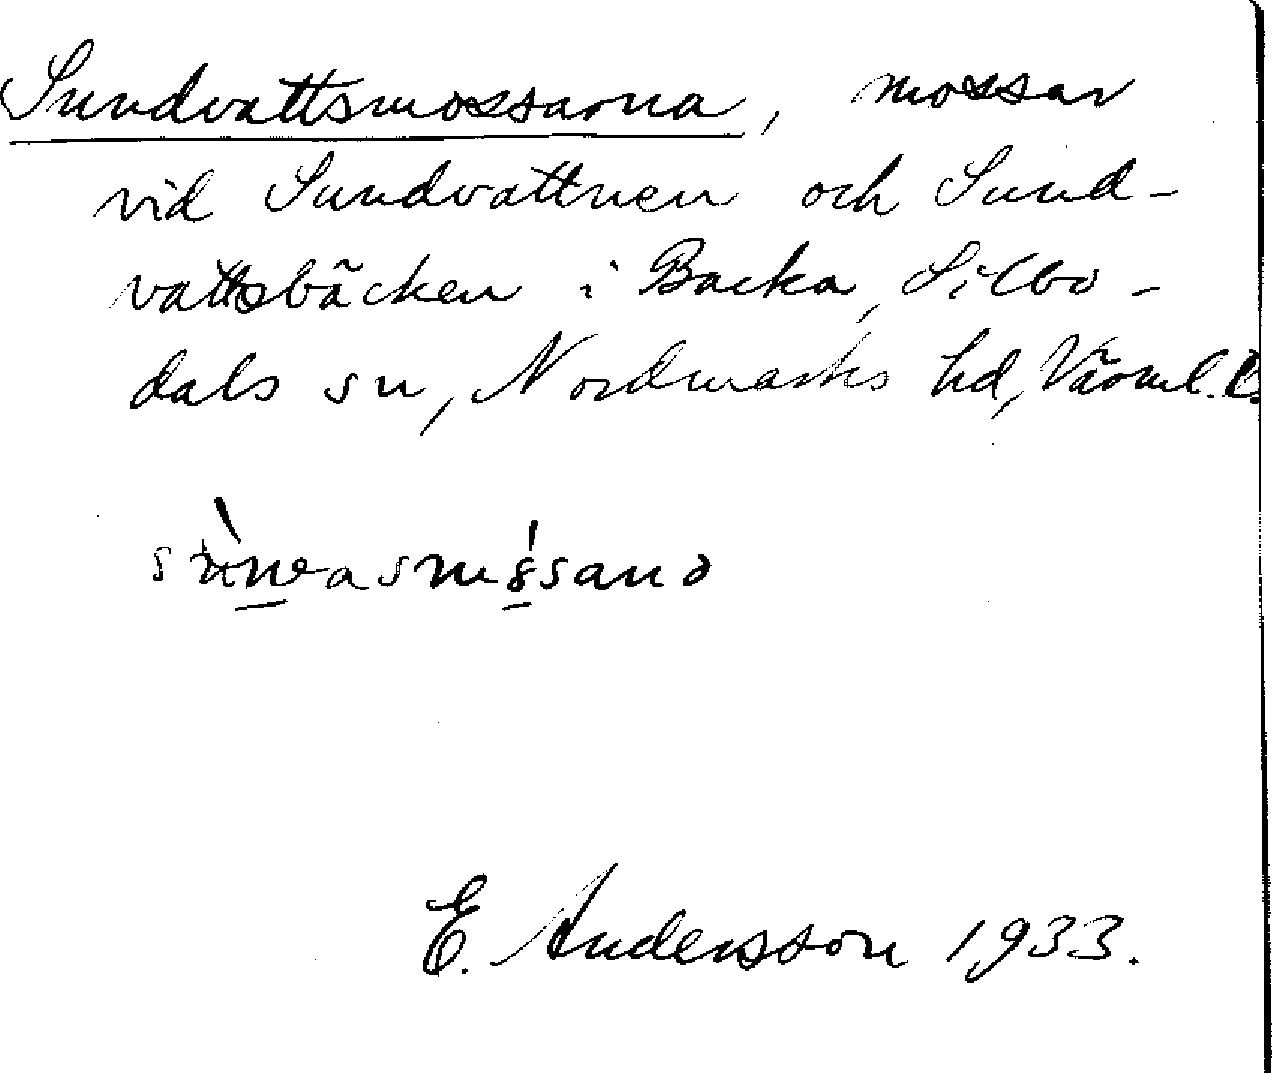 Sundvattsmossarna, mossar
vid Sundvattnen och Sund-
vattsbäcken i Backa, Silbo-
dals sn, Nordmarks hd, Värml. l.
E. Andersson 1933.